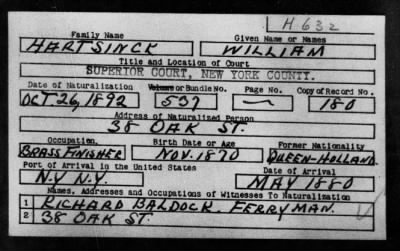 H 632
Family Name Given Name or Names
HARTSINCK WILLIAM
Title and Location of Court
SUPERIOR COURT, NEW YORK COUNTY.
Date of Naturalization Volume or Bundle No. Page No. Copy of Record No.
OCT. 26, 1892 537 — 180
Address of Naturalized Person
38 OAK ST.
Occupation Birth Date or Age Former Nationality
BRASS FINISHER NOV. 1870 QUEEN-HOLLAND
Port of Arrival in the United States Date of Arrival
N.Y N.Y. MAY 1880
Names, Addresses and Occupations of Witnesses To Naturalization
1 RICHARD BALDOCK. FERRYMAN.
2 38 OAK ST.